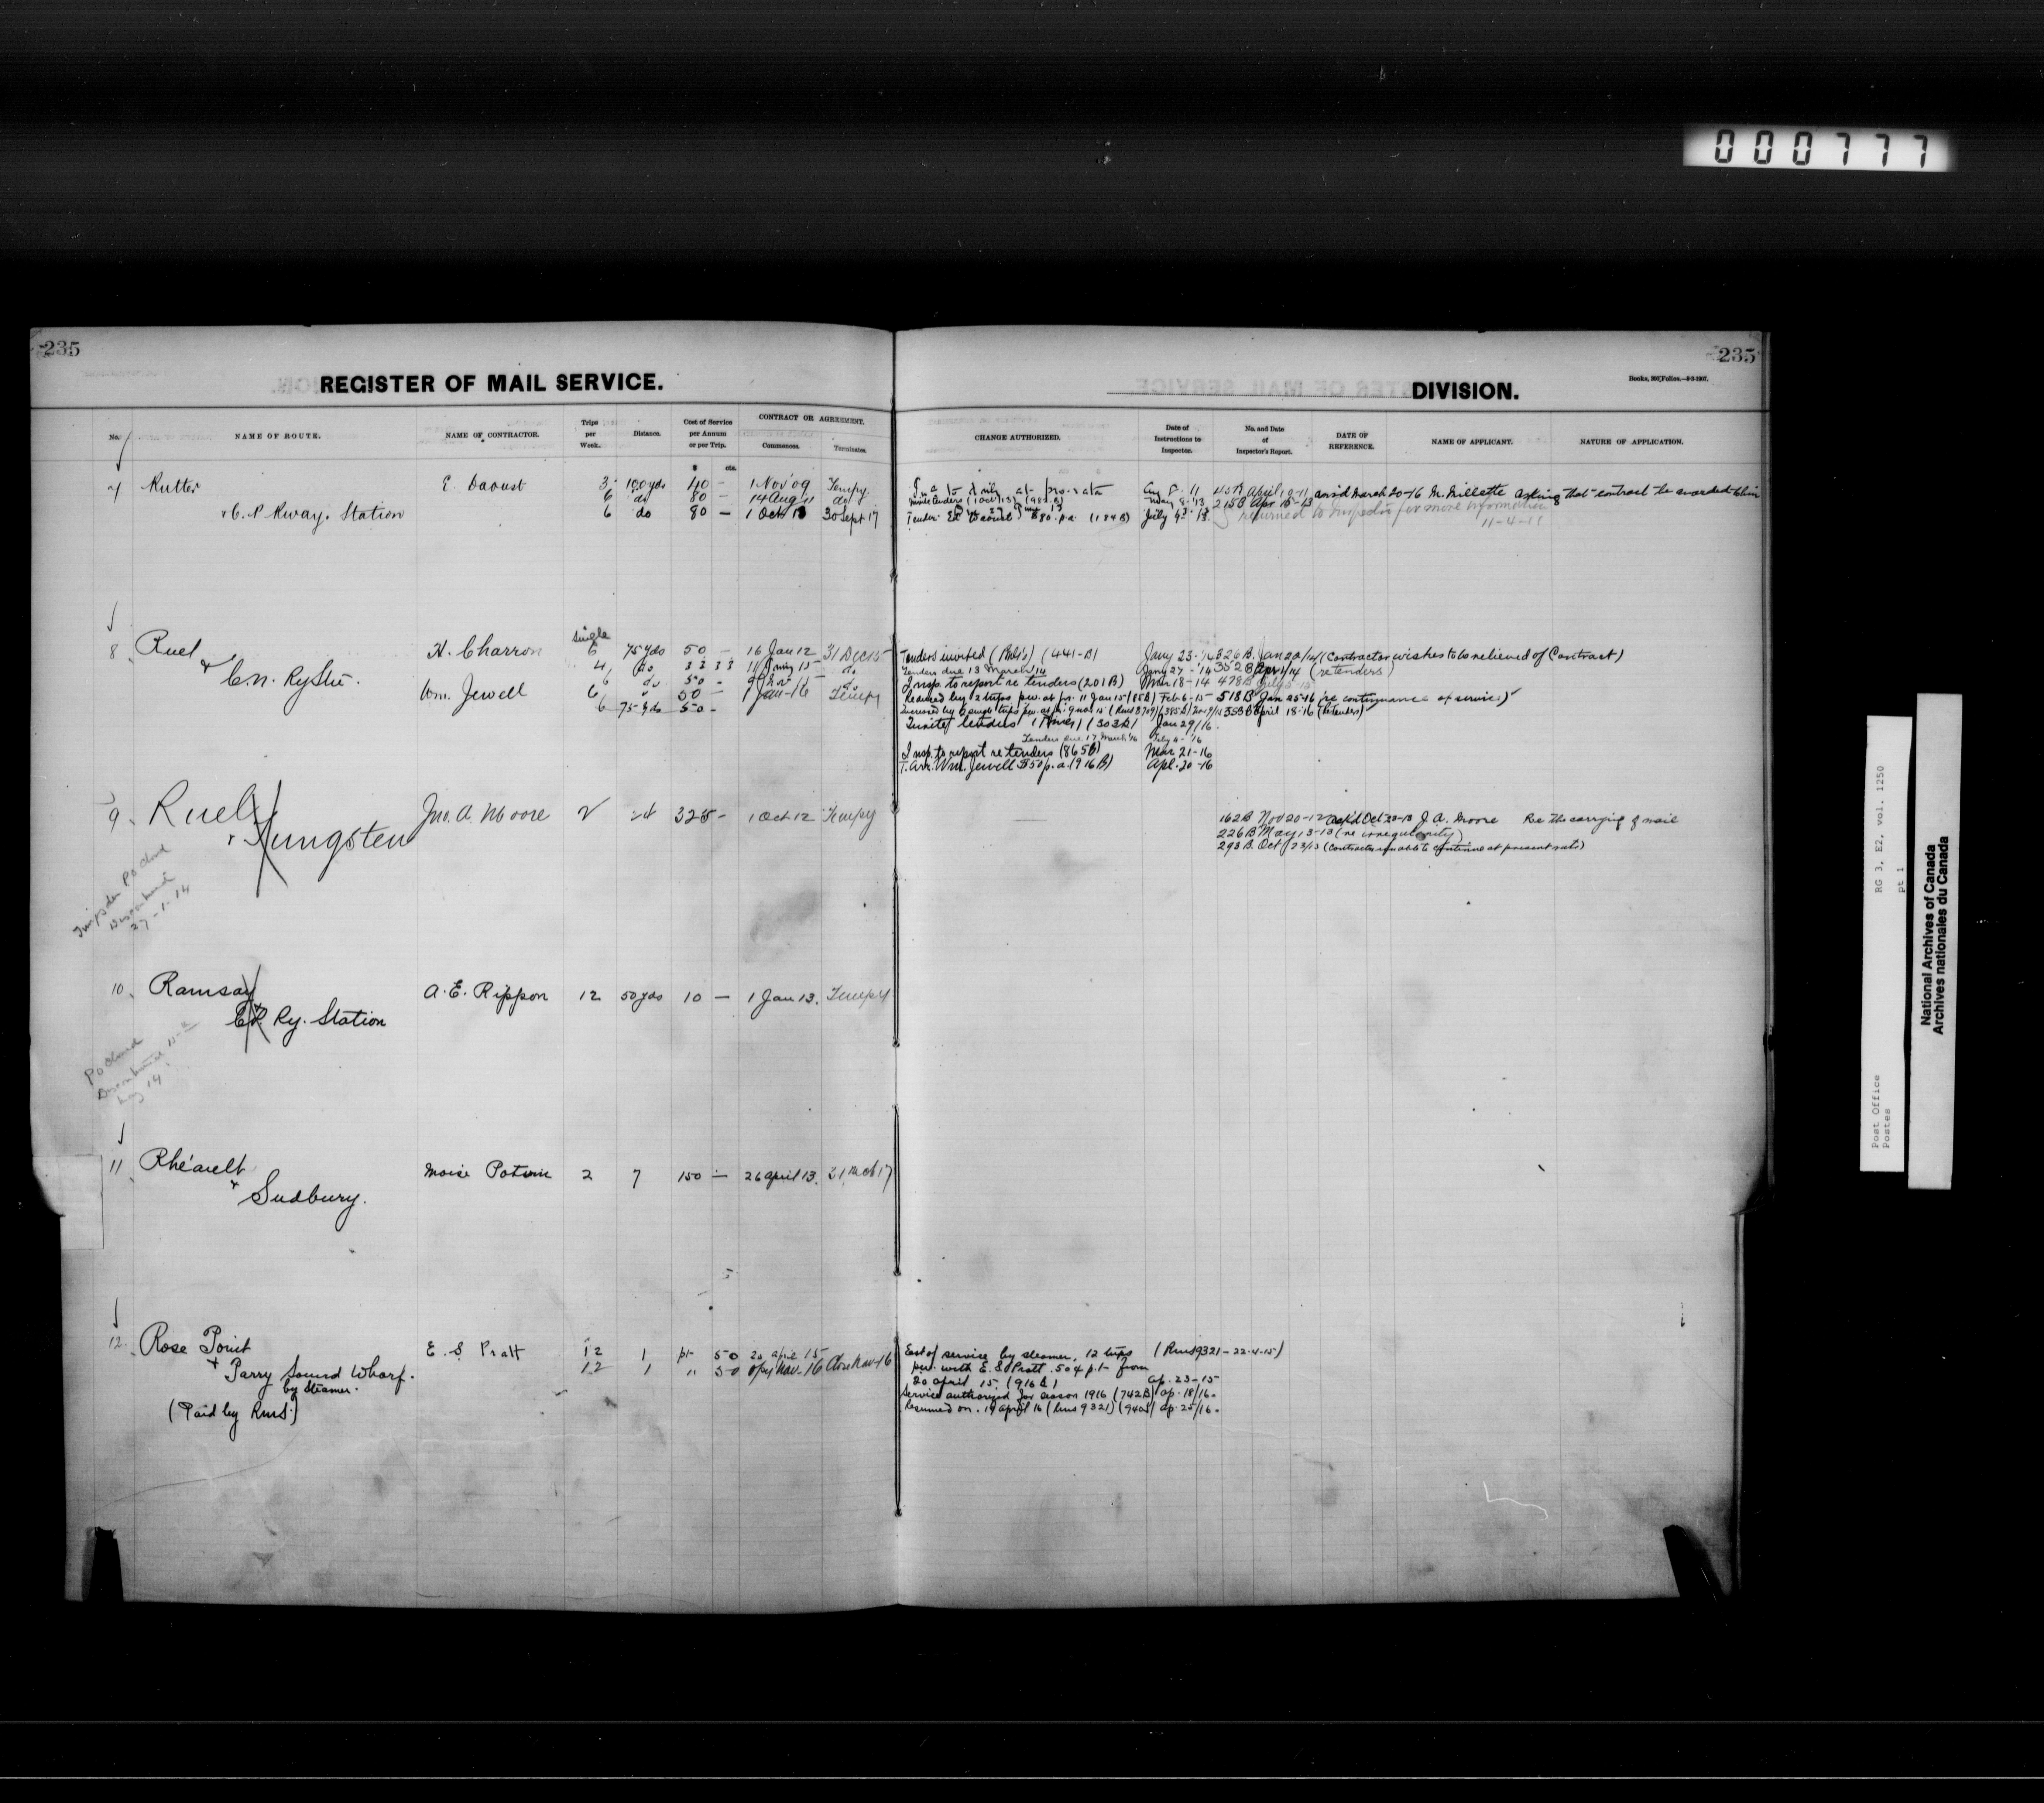 000777
235
REGISTER OF MAIL SERVICE.
No.
NAME OF ROUTE.
NAME OF CONTRACTOR.
Trips per Week.
Distance.
Cost of Service per Annum or per Trip.
CONTRACT OR AGREEMENT.
Commences.
Terminates.
$ cts.
7 Rutter E. Daoust 3 100 yds 40 — 1 Nov '09 Tempy
6 do 80 — 14 Aug 11 do
& C. P. Rway. Station 6 do 80 — 1 Oct 13 30 Sept 17
8 Ruel H. Charron single 6 75 yds 50 — 16 Jan 12 31 Dec 15
4 do 33 33 11 Jany 15 do
& C.N. Ry Stn. 6 do 50 - 9 Nov 15 do
Wm. Jewell 6 " 50 — 1 Jan-16 Tempy
6 75 yds 50 -
9 Ruel Jno. A. Moore 2 24 325 - 1 Oct 12 Tempy
& Tungsten
PO closed
27-1-14
10 Ramsay A. E. Rippon 12 50 yds 10 — 1 Jan 13. Tempy
& C.P. Ry. Station
PO closed
11 Rhéault Moise Potvin 2 7 150 — 26 April 13. 31 Mch 17
& Sudbury.
12 Rose Point E. S. Pratt 12 1 pt 50 20 April 15
& Parry Sound Wharf. 12 1 " 50 Opg Nav. 16 Close Nav-16
by Steamer.
(Paid by Rms.)
235
DIVISION.
Books, 300 Folios.—8-5-1907.
CHANGE AUTHORIZED.
Date of Instructions to Inspector.
No. and Date of Inspector's Report.
DATE OF REFERENCE.
NAME OF APPLICANT.
NATURE OF APPLICATION.
to daily at pro rata Aug 8. 11 45A April 10-11 March 20-16 M. Millette asking that contract be awarded to him
Invite tenders (1 Oct 13) (98 B) May 9-'13 215B Apr 18-13
returned to Inspector for more information
Tender E. Daoust $80. p.a. (184 B) July 9-'13.
11-4-11
Tenders invited (Publs) (441-B) Jany 23-'14 326 B. Jan 20/14 (Contractor wishes to be relieved of Contract)
Tenders due 13 March 14 Jany 27-'14 352 B Apr 1/14 (re tenders)
Insp. to report re tenders (201 B) Mar 18-14 478 B
Reduced by 2 trips p.w. at p.r. 11 Jan 15 (85B) Feb 6-15 518 B Jan 25-16 (re continuance of service)
April 18-16 (re tenders)
Invite tenders (303B) Jan 29/16
Tenders due 17 March '16 Feby 4-'16
Insp. to report re tenders (865B) Mar 21-16
T. Arr. Wm. Jewell $50 p.a. (916 B) Apl. 20-16
162B Nov 20-12 J. A. Moore Re the carrying of mail
226 B May 13-13 (re irregularity)
293 B. Oct 23/13 (Contractor unable to continue at present rate)
Est of service by steamer, 12 trips (Rms 9321-22-4-15)
p.w. with E. S. Pratt. 50¢ p.t. from
20 April 15. (916 B) Ap. 23-15
Service authorized for season 1916 (742B) Ap. 18/16.
Resumed on 19 April 16 (Rms 9321) Ap. 25/16.
Post Office RG 3, E2, vol. 1250
Postes pt 1
National Archives of Canada
Archives nationales du Canada